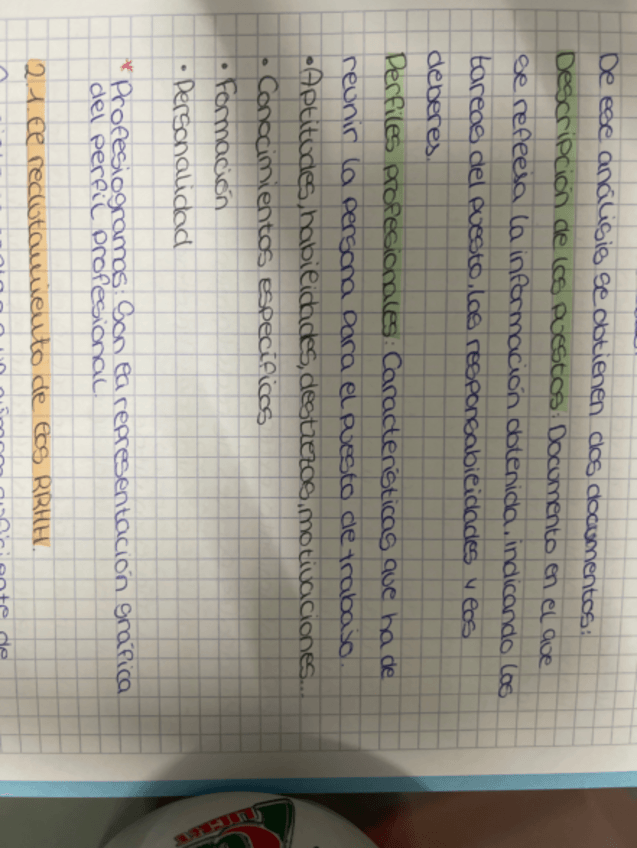 De ese análisis se obtienen dos documentos:
Descripción de los puestos: Documento en el que
se refleja la información obtenida, indicando las
tareas del puesto, las responsabilidades y los
deberes.
Perfiles profesionales: Características que ha de
reunir la persona para el puesto de trabajo.
• Aptitudes, habilidades, destrezas, motivaciones...
• Conocimientos específicos
• Formación
• Personalidad
* Profesiogramas: Son la representación gráfica
del perfil profesional.
2.1 El reclutamiento de los RRHH.